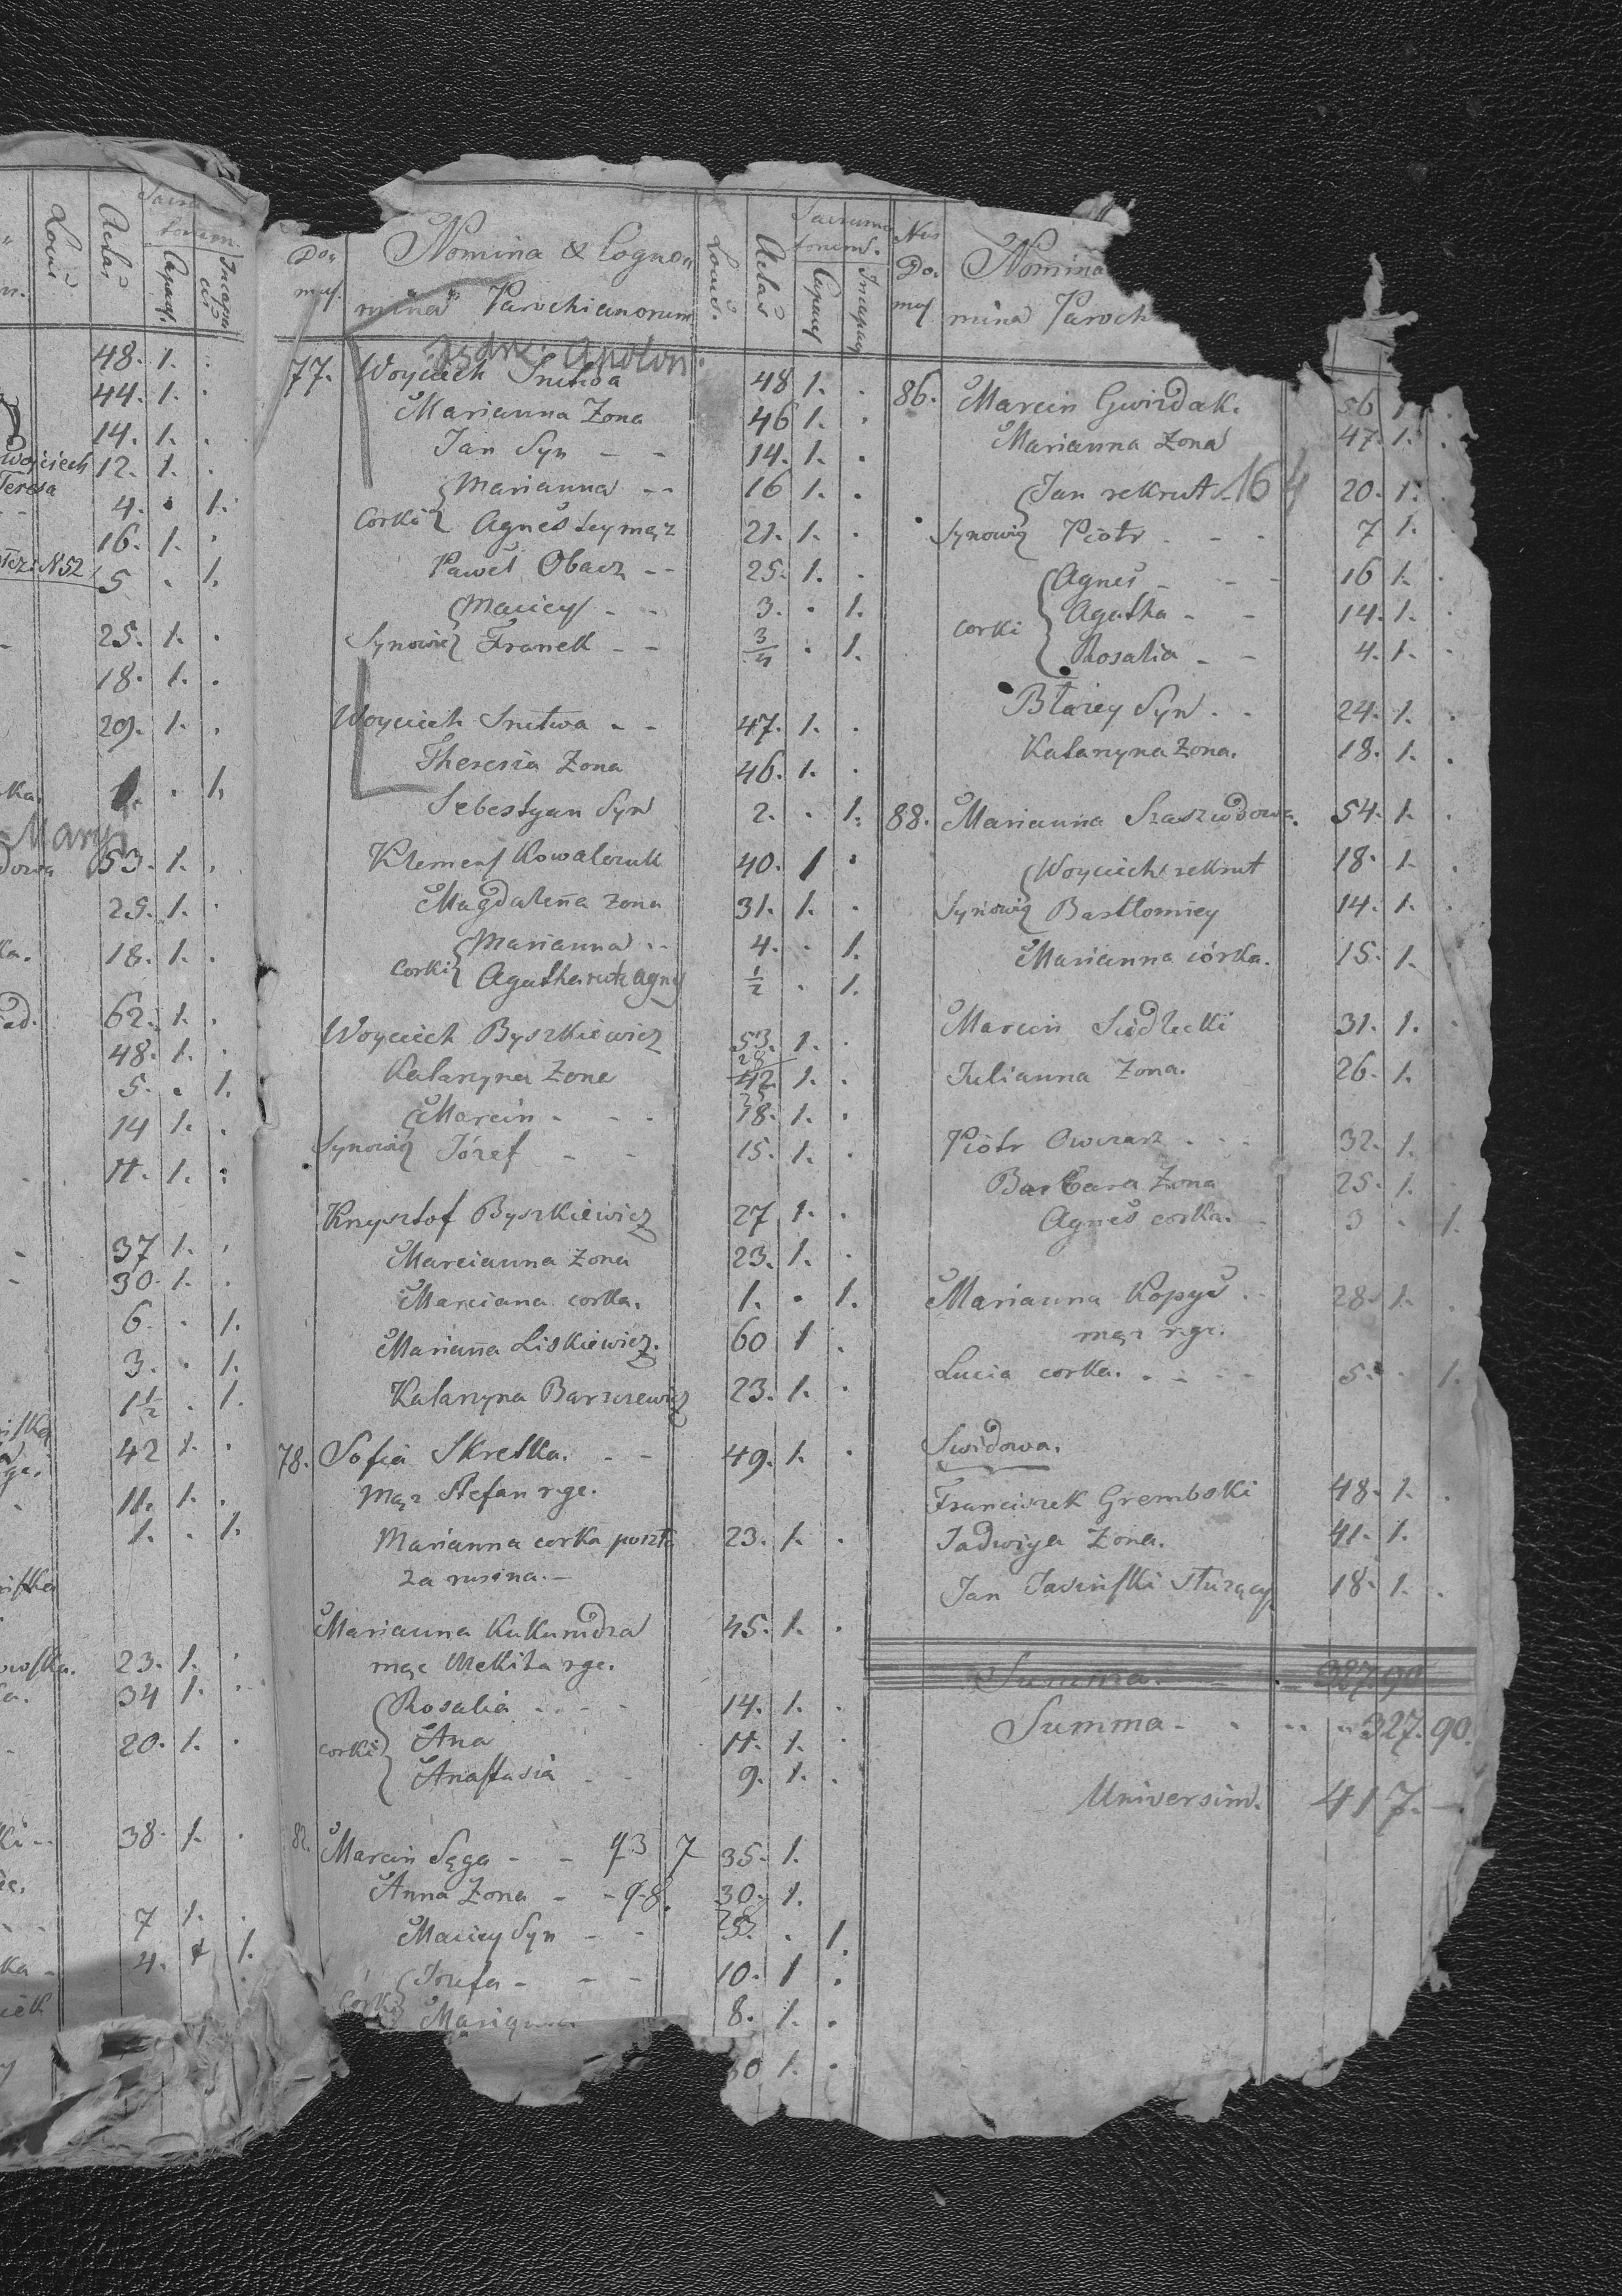 Locus
Aetas
Capaces
48. 1. .
44. 1. .
14. 1. .
Woyciech 12. 1. .
Teresa
4. . 1.
16. 1. .
N52 5 . 1.
25. 1. .
18. 1. .
29. 1. .
1. . 1.
Mary
53. 1. .
25. 1. .
18. 1. .
62. 1. .
48. 1. .
5. . 1.
14 1. .
11. 1. .
37 1. .
30. 1. .
6. . 1.
3. . 1.
1 1/2 . 1.
42 1. .
11. 1. .
1. . 1.
23. 1. .
34 1. .
20. 1. .
38. 1. .
7 1. .
4. 1.
Do„
mus.
Nomina & Cogno„
mina Parochianorum
Locus.
Aetas
Sacrame
torum.
Capaces
Incapaces
77. Woyciech Snitwa 48 1. .
Marianna Zona 46 1. .
Jan Syn - - 14. 1. .
Marianna - - 16 1. .
Corki Agnes Jey mąz 21. 1. .
Paweł Obacz - - 25. 1. .
Maciey - - 3. . 1.
Synowie Franek - - 3/4 . 1.
Woyciech Snitwa - - 47. 1. .
Theresia Zona 46. 1. .
Sebestyan Syn 2. . 1.
Klemens Kowalczuk 40. 1 .
Magdalena zona 31. 1. .
Marianna - - 4. . 1.
Corki Agatha 1/2 . 1.
Woyciech Byszkiewicz 53. 1. .
Katarzyna Zona 42 1. .
Marcin - - - 18. 1. .
Synowie Józef - - 15. 1. .
Krzysztof Byszkiewicz 27 1. .
Marcianna zona 23. 1. .
Marciana corka. 1. . 1.
Marianna Liskiewicz. 60 1 .
Katarzyna Barszewicz 23. 1. .
78. Sofia Skretka. - - 49. 1. .
Mąz Stefan r.ge.
Marianna corka poszła 23. 1. .
za rusina. -
Marianna Kukurudza 45. 1. .
mąz Mekita r.ge.
Rosalia - - - 14. 1. .
corki Ana 11. 1. .
Anastasia - - 9. 1. .
82. Marcin Sęga - - 93 7 35. 1.
Anna Zona - - 98. 30. 1.
Maciey Syn - - . 1.
Jozefa - - - 10. 1 .
Corki Marianna 8. 1. .
30 1. .
Nrus
Do.
mus
Nomina
mina Paroch
86. Marcin Gwizdak. 56 1. .
Marianna Zona 47. 1. .
Jan rekrut 164 20. 1. .
Synowie Piotr - - - 7 1. .
Agnes - - - 16 1. .
corki Agatha - - 14. 1. .
Rosalia - - 4. 1. .
Błażey Syn . . 24. 1. .
Katarzyna Zona. 18. 1. .
88. Marianna Szaszwdowa. 54. 1. .
Woyciech rekrut 18. 1. .
Synowie Bartłomiey 14. 1. .
Marianna córka. 15. 1. .
Marcin Siedlecki 31. 1. .
Julianna Zona. 26. 1.
Piotr Owczarz . . . 32. 1.
Barbara Zona 25. 1. .
Agnes corka. - 3 . 1.
Marianna Kopyś . . 28. 1. .
mąz r.ge.
Lucia corka. . - - - 5. . 1.
Swidowa.
Franciszek Grembski 48. 1. .
Jadwiga Zona. 41. 1.
Jan Jasinski służący 18. 1. .
Summa. - - 327. 90
Summa - . . . . 327. 90.
Universim. 417. -